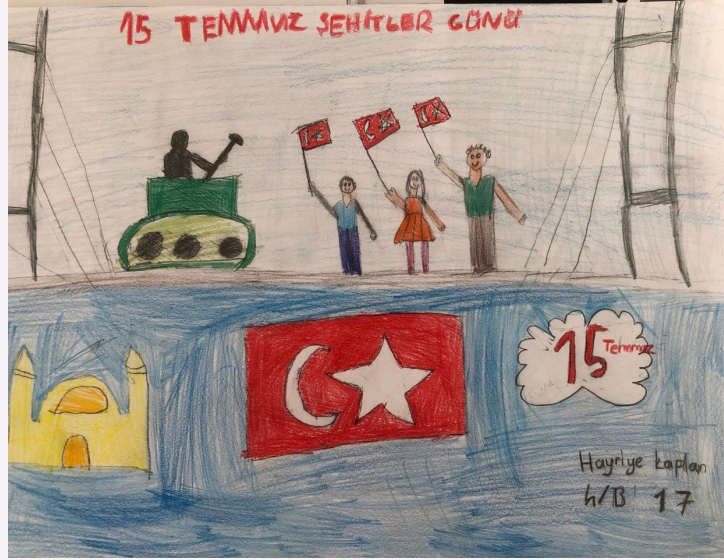 15 TEMMUZ ŞEHİTLER GÜNÜ
15 Temmuz
Hayriye Kaplan
4/B 17